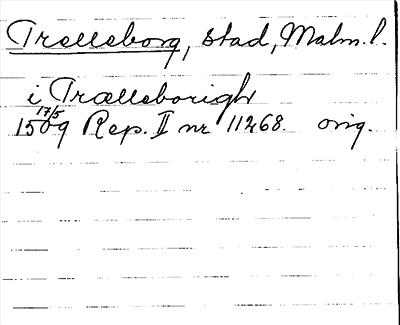 Trelleborg, stad, Malm.l.
i Trælleborigh
17/5
1509 Rep. II nr 11268. orig.